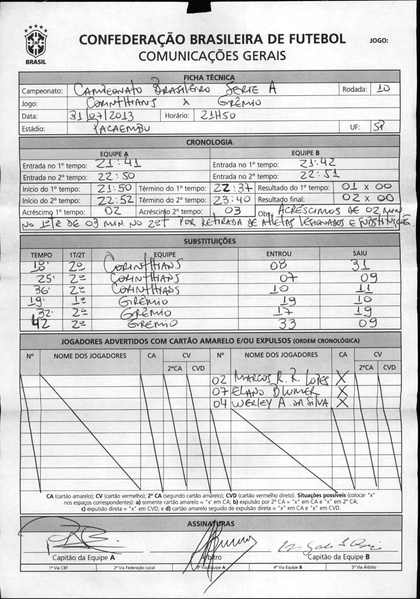 CONFEDERAÇÃO BRASILEIRA DE FUTEBOL
COMUNICAÇÕES GERAIS
JOGO:
BRASIL
FICHA TÉCNICA
Campeonato: CAMPEONATO BRASILEIRO SÉRIE A Rodada: 10
Jogo: CORINTHIANS X GRÊMIO
Data: 31/07/2013 Horário: 21H50
Estádio: PACAEMBU UF: SP
CRONOLOGIA
EQUIPE A EQUIPE B
Entrada no 1º tempo: 21:41 Entrada no 1º tempo: 21:42
Entrada no 2º tempo: 22:50 Entrada no 2º tempo: 22:51
Início do 1º tempo: 21:50 Término do 1º tempo: 22:37 Resultado do 1º tempo: 01 X 00
Início do 2º tempo: 22:52 Término do 2º tempo: 23:40 Resultado final: 02 X 00
Acréscimo 1º tempo: 02 Acréscimo 2º tempo: 03 Obs: ACRÉSCIMOS DE 02 MIN
NO 1ºT E DE 03 MIN NO 2ºT POR RETIRADA DE ATLETAS LESIONADOS E SUBSTITUIÇÕES
SUBSTITUIÇÕES
TEMPO 1T/2T EQUIPE ENTROU SAIU
18' 2º CORINTHIANS 08 31
25' 2º CORINTHIANS 07 09
36' 2º CORINTHIANS 10 11
19' 1º GRÊMIO 19 10
32' 2º GRÊMIO 17 19
42 2º GRÊMIO 33 09
JOGADORES ADVERTIDOS COM CARTÃO AMARELO E/OU EXPULSOS (ORDEM CRONOLÓGICA)
Nº NOME DOS JOGADORES CA CV Nº NOME DOS JOGADORES CA CV
2ºCA CVD 2ºCA CVD
02 MARCOS R. R. LOPES X
07 ELANO BLUMER X
04 WERLEY A. DA SILVA X
CA (cartão amarelo); CV (cartão vermelho); 2º CA (segundo cartão amarelo); CVD (cartão vermelho direto). Situações possíveis (colocar "x"
nos espaços correspondentes): a) somente cartão amarelo = "x" em CA; b) expulsão por 2º CA = "x" em CA e "x" em 2º CA;
c) expulsão direta = "x" em CVD; e d) cartão amarelo seguido de expulsão direta = "x" em CA e "x" em CVD.
ASSINATURAS
Capitão da Equipe A Árbitro Capitão da Equipe B
1ª Via CBF 2ª Via Federação Local 3ª Via Equipe A 4ª Via Equipe B 5ª Via Árbitro